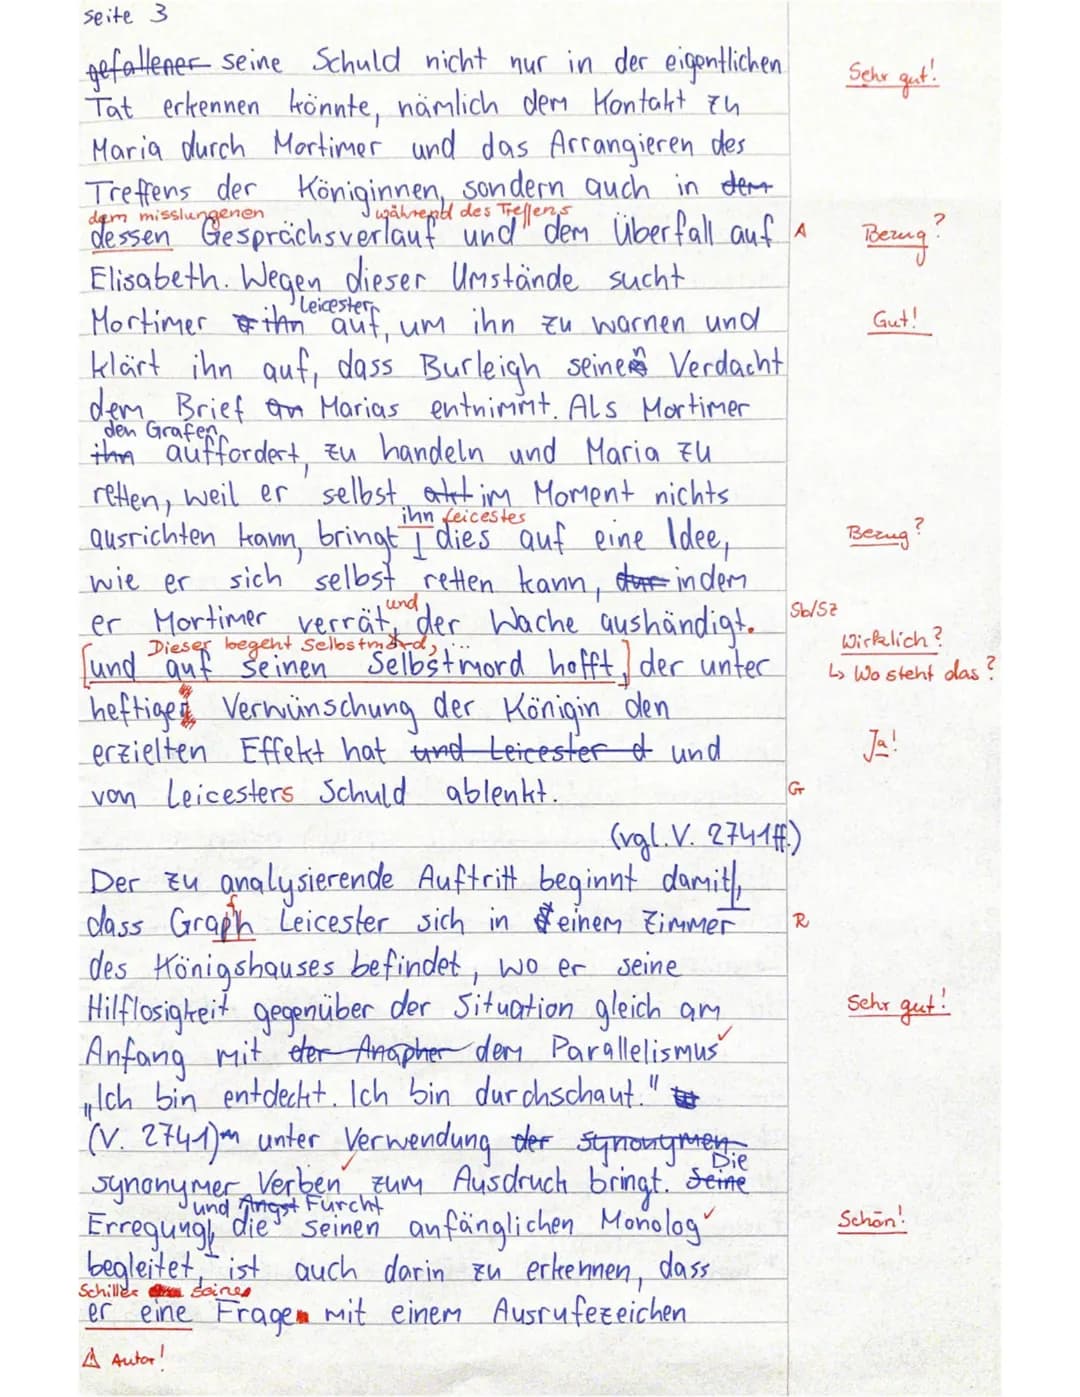 Seite 3
gefallener seine Schuld nicht nur in der eigentlichen
Sehr gut!
Tat erkennen könnte, nämlich dem Kontakt zu
Maria durch Mortimer und das Arrangieren des
Treffens der Königinnen, sondern auch in dem
dem misslungenen während des Treffens
dessen Gesprächsverlauf und dem Überfall auf
A Bezug?
Elisabeth. Wegen dieser Umstände sucht
Leicester
Mortimer ihn auf, um ihn zu warnen und
Gut!
klärt ihn auf, dass Burleigh seinen Verdacht
dem Brief an Marias entnimmt. Als Mortimer
den Grafen
ihn auffordert, zu handeln und Maria zu
retten, weil er selbst akt im Moment nichts
ihn Leicestes
ausrichten kann, bringt dies auf eine Idee,
Bezug?
wie er sich selbst retten kann, dur indem
und
er Mortimer verrät, der Wache aushändigt.
Sb/Sz
Wirklich?
Dieser begeht Selbstmord, ...
[und auf seinen Selbstmord hofft,] der unter
↳ Wo steht das?
heftiger Verwünschung der Königin den
erzielten Effekt hat und Leicester d und
Ja!
von Leicesters Schuld ablenkt.
G
(vgl. V. 2741ff.)
Der zu analysierende Auftritt beginnt damit,
f
dass Graph Leicester sich in seinem Zimmer
R
des Königshauses befindet, wo er seine
Hilflosigkeit gegenüber der Situation gleich am
Sehr gut!
Anfang mit der Anapher dem Parallelismus ✓
„Ich bin entdeckt. Ich bin durchschaut."
(V. 2741) unter Verwendung der Synonymen
Die
synonymer Verben ✓ zum Ausdruck bringt. Seine
und Angst Furcht
Erregung, die seinen anfänglichen Monolog ✓
Schön!
begleitet, ist auch darin zu erkennen, dass
Schiller seine
er eine Frage mit einem Ausrufezeichen
⚠ Autor!